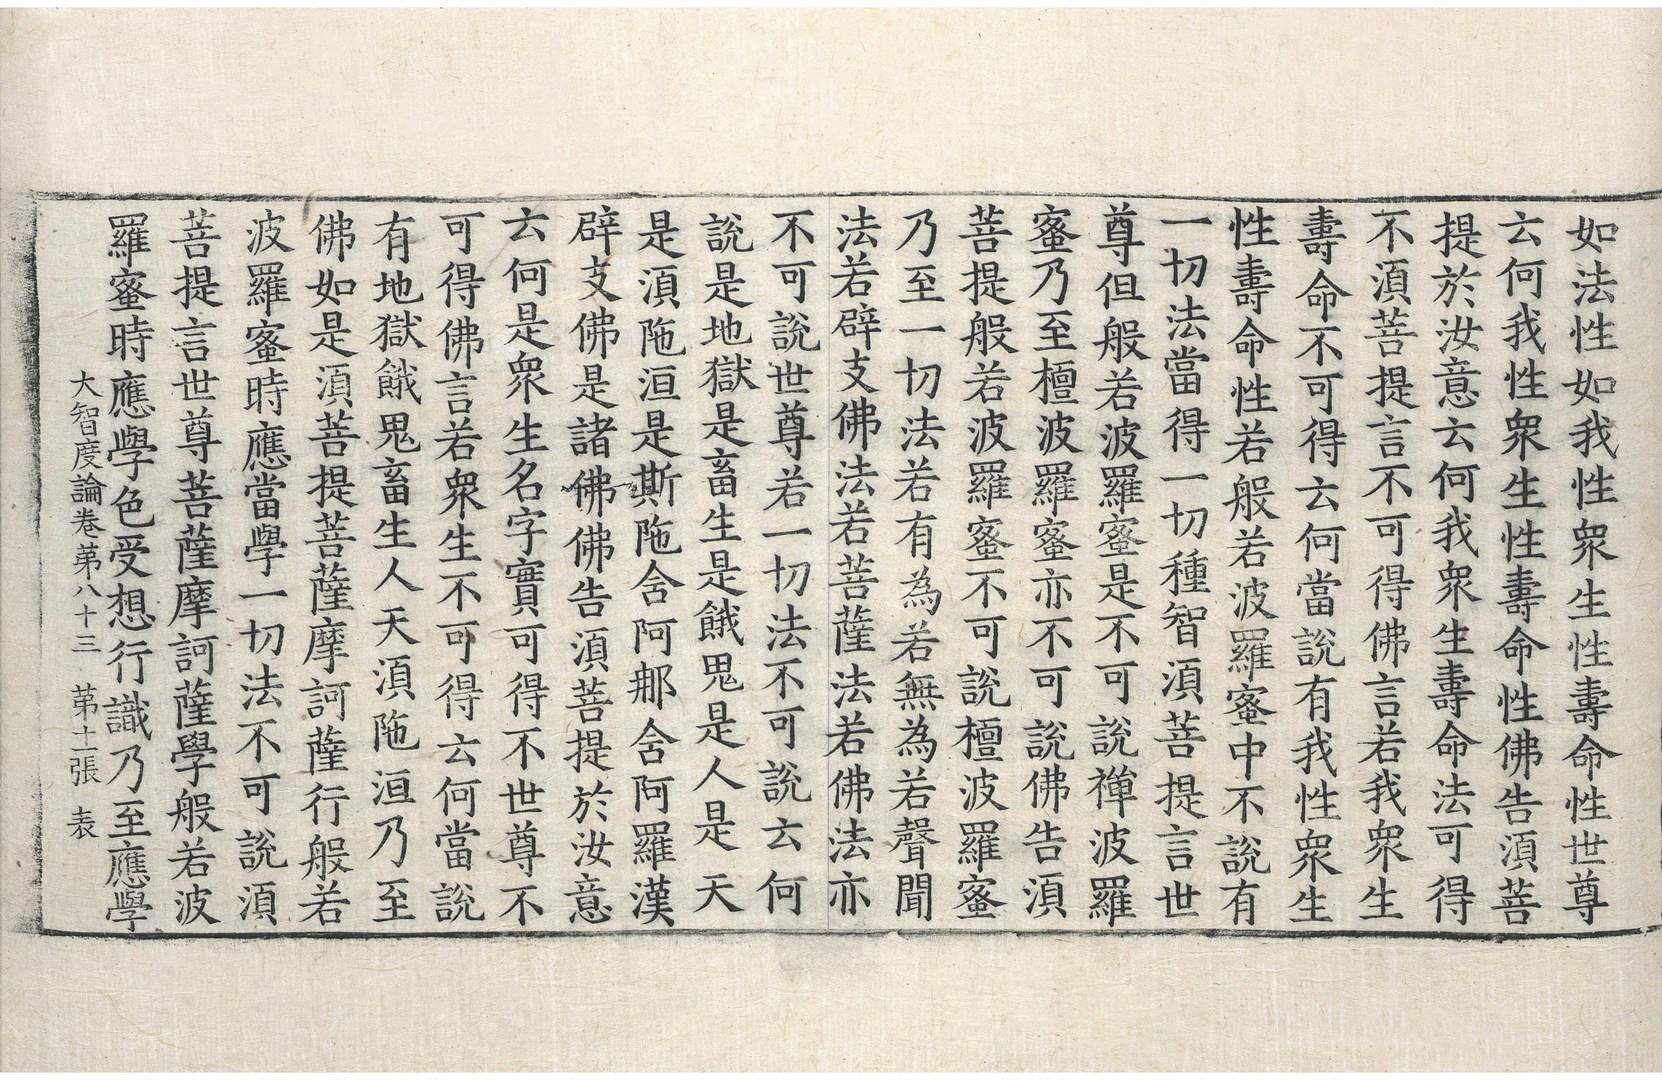 如法性如我性衆生性壽命性世尊
云何我性衆生性壽命性佛告湏菩
提於汝意云何我衆生壽命法可得
不湏菩提言不可得佛言若我衆生
壽命不可得云何當說有我性衆生
性壽命性若般若波羅蜜中不說有
一切法當得一切種智湏菩提言世
尊但般若波羅蜜是不可說禪波羅
蜜乃至檀波羅蜜亦不可說佛告湏
菩提般若波羅蜜不可說檀波羅蜜
乃至一切法若有為若無為若聲聞
法若辟支佛法若菩薩法若佛法亦
不可說世尊若一切法不可說云何
說是地獄是畜生是餓鬼是人是天
是湏陁洹是斯陁含阿那含阿羅漢
辟支佛是諸佛佛告湏菩提於汝意
云何是衆生名字實可得不世尊不
可得佛言若衆生不可得云何當說
有地獄餓鬼畜生人天湏陁洹乃至
佛如是湏菩提菩薩摩訶薩行般若
波羅蜜時應當學一切法不可說湏
菩提言世尊菩薩摩訶薩學般若波
羅蜜時應學色受想行識乃至應學
大智度論卷第八十三 第十一張 表